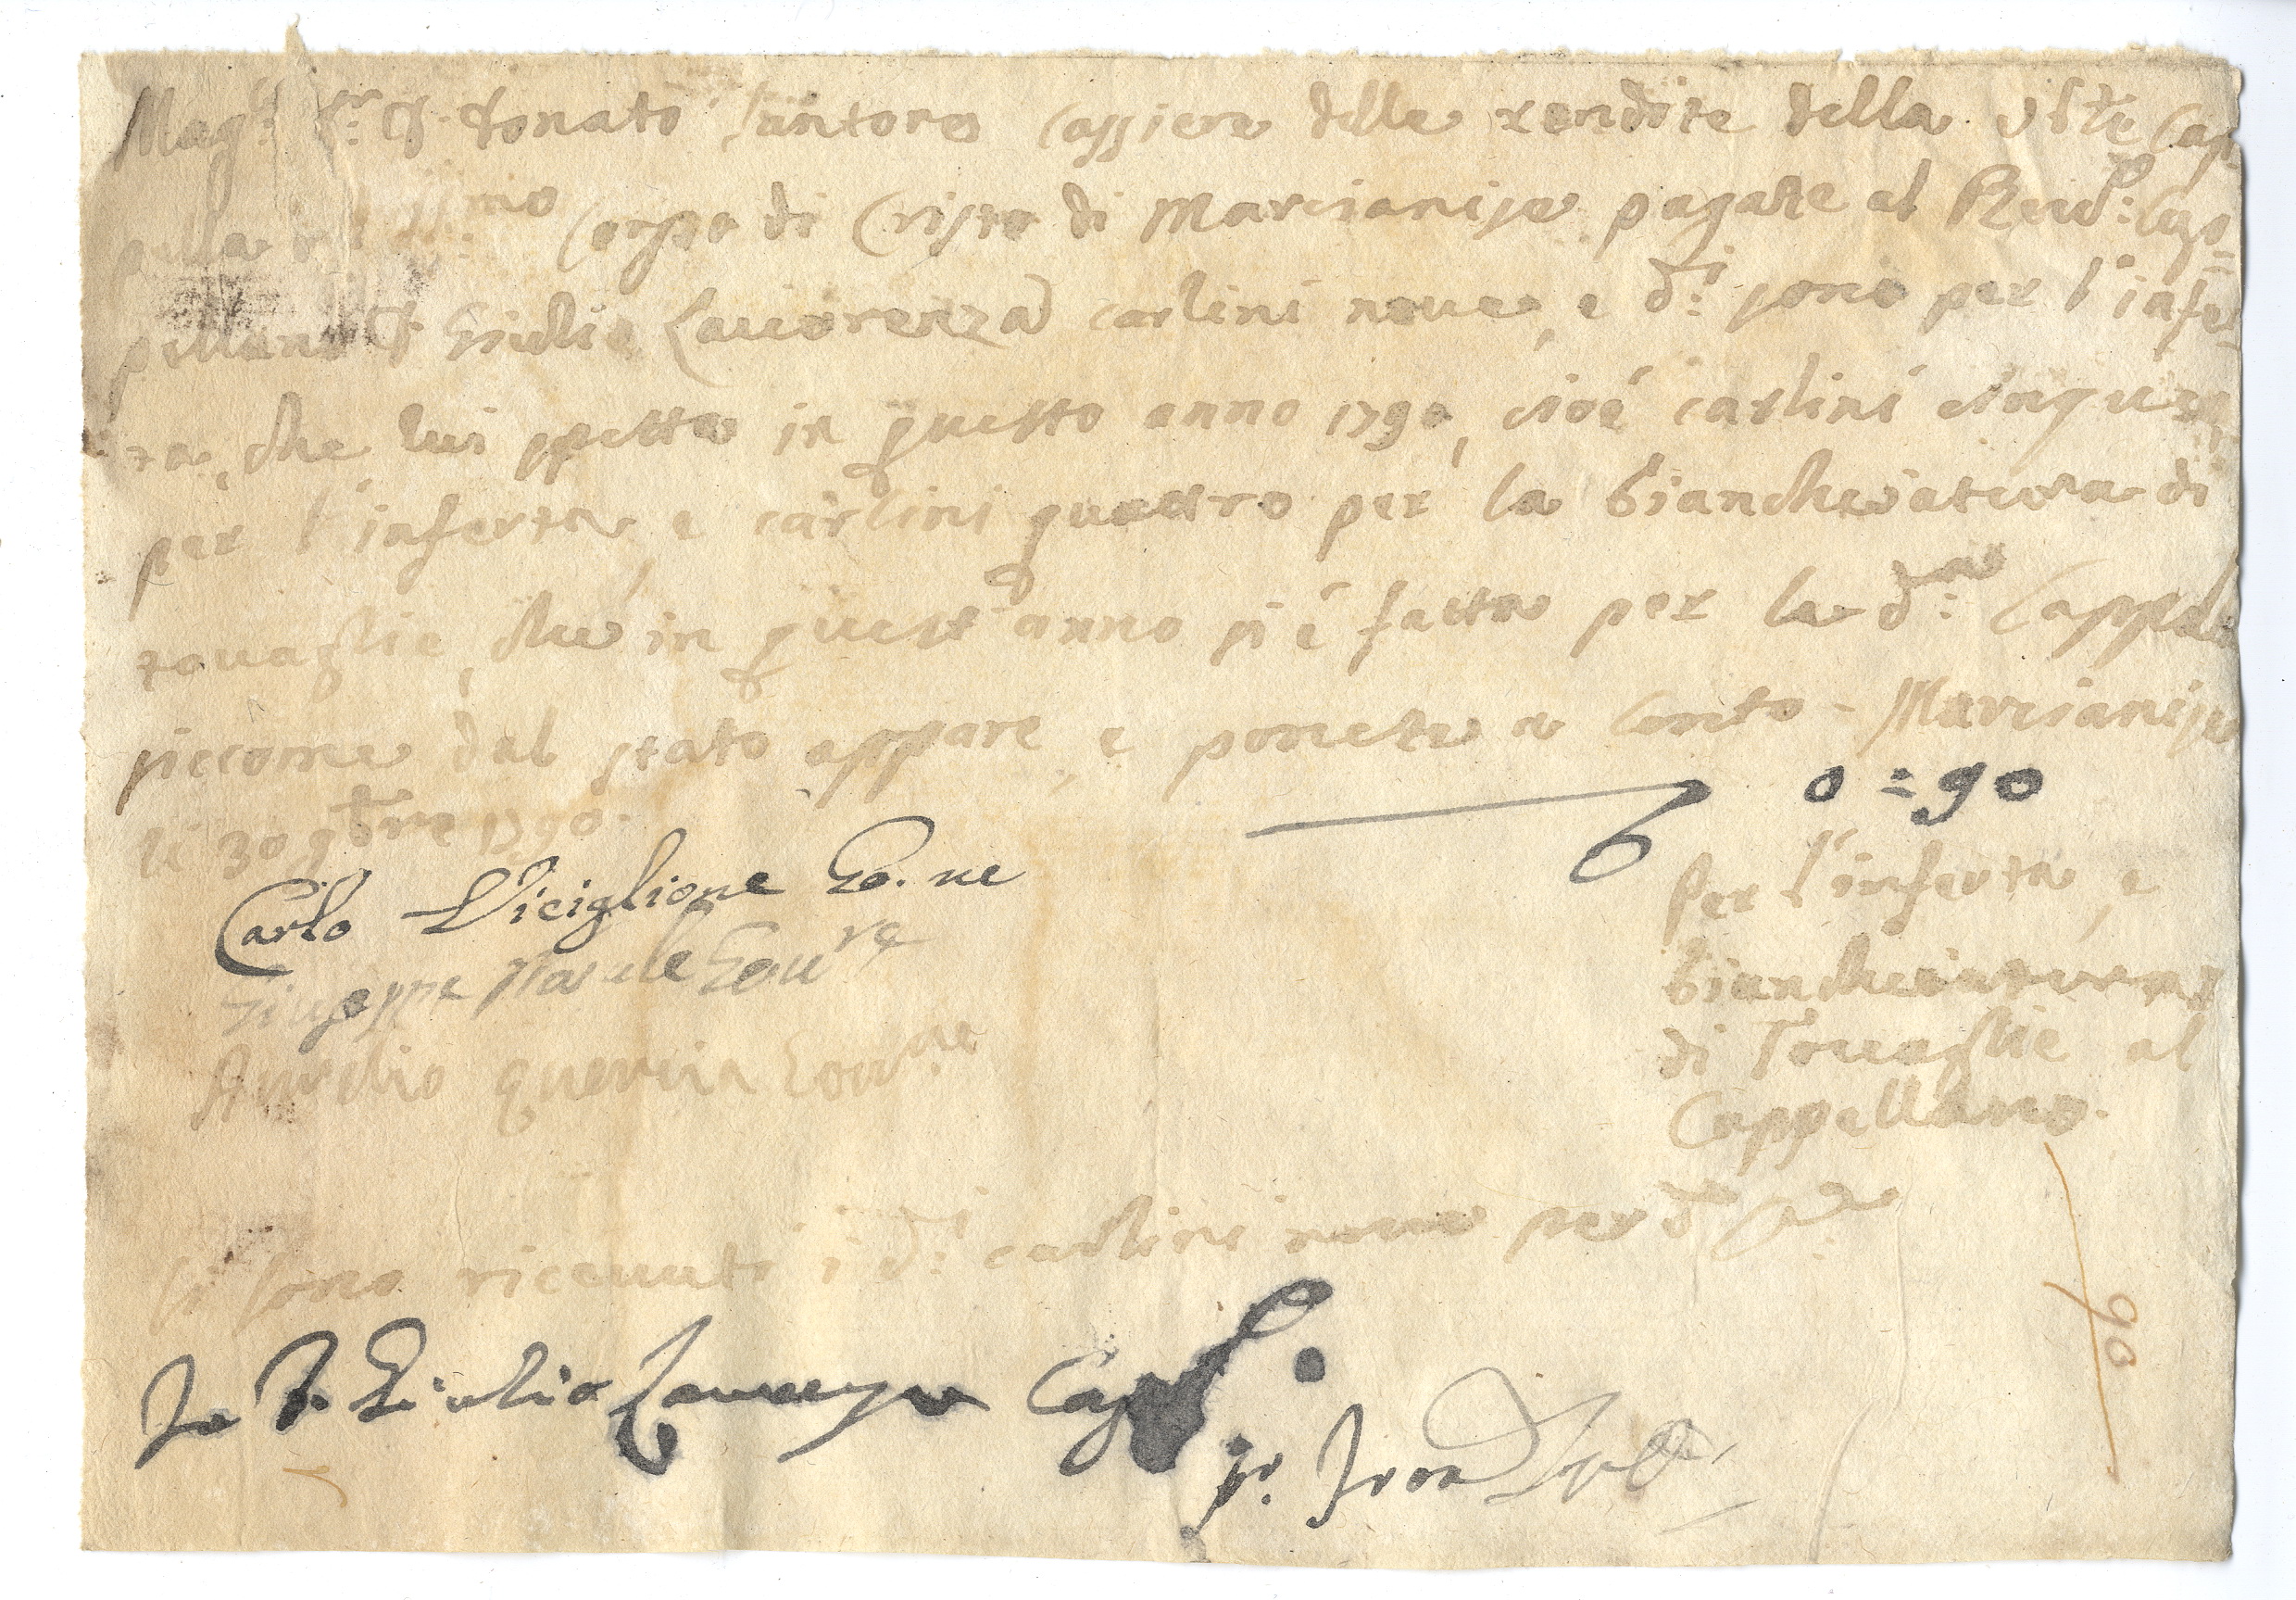 Mag.co Sr. D. Donato Santoro Cassiere delle rendite della Vble Cap=
pella del SSmo Corpo di Cristo di Marcianise pagate al Revdo: Cap=
pellano D. Giulio Lauorenza carlini noue, e d.i sono per l'infer=
ta, che lui spetta in questo anno 1790, cioè carlini cinque
per l'inferta, e carlini quattro per la biancheiatura di
touaglie, che in quest'anno si è fatta per la d.a Cappella
siccome dal stato appare, e ponete a Conto - Marcianise
li 30 9bre 1790.
0 = 90
Carlo Viciglione Go.ne
Giuseppe Gou.re
Aurelio Quercia Gou.ne
Per l'inferta, e
biancheiatura
di Touaglie al
Cappellano.
Si sono riceuuti i d.i carlini noue per d.a
Io D. Giulio Cap
90